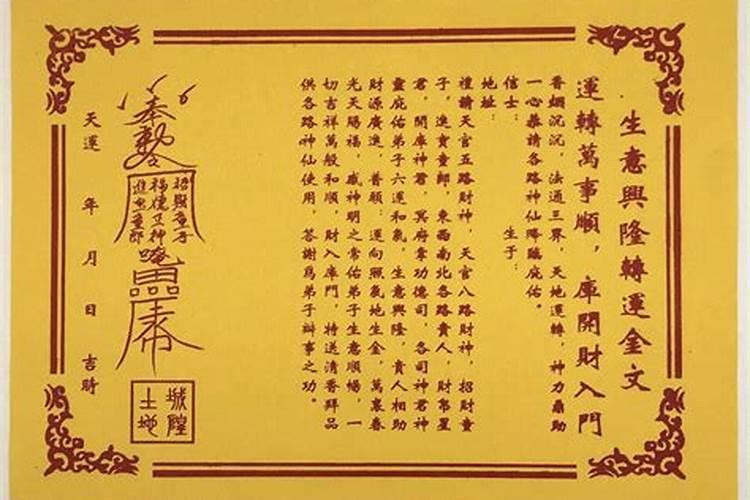 生意興隆轉運金文
運轉萬事順,庫開財入門
香烟沉沉,法通三界,天地運轉,神力鼎助
一心恭請各路神仙降臨庇佑。
信士: 生于:
地址:
禮請天官五路財神,天官八路財神,招財童
子,進寶童郎,東西南北各路貴人,財帛星
君,開庫神君,冥府掌功德司,各司神君神
靈庇佑弟子六運和氣,生意興隆,貴人相助
財源廣進,普願:運向照氣地生金,萬裏春
光天賜福,感神明之常佑弟子生意順暢,一
切吉祥萬般和順,財入庫門,特送清香拜品
供各路神仙使用,答謝爲弟子辦事之功。
奉勅令
招財童子
福德正神
進寶童郎
城隍
土地
天運 年 月 日 吉時